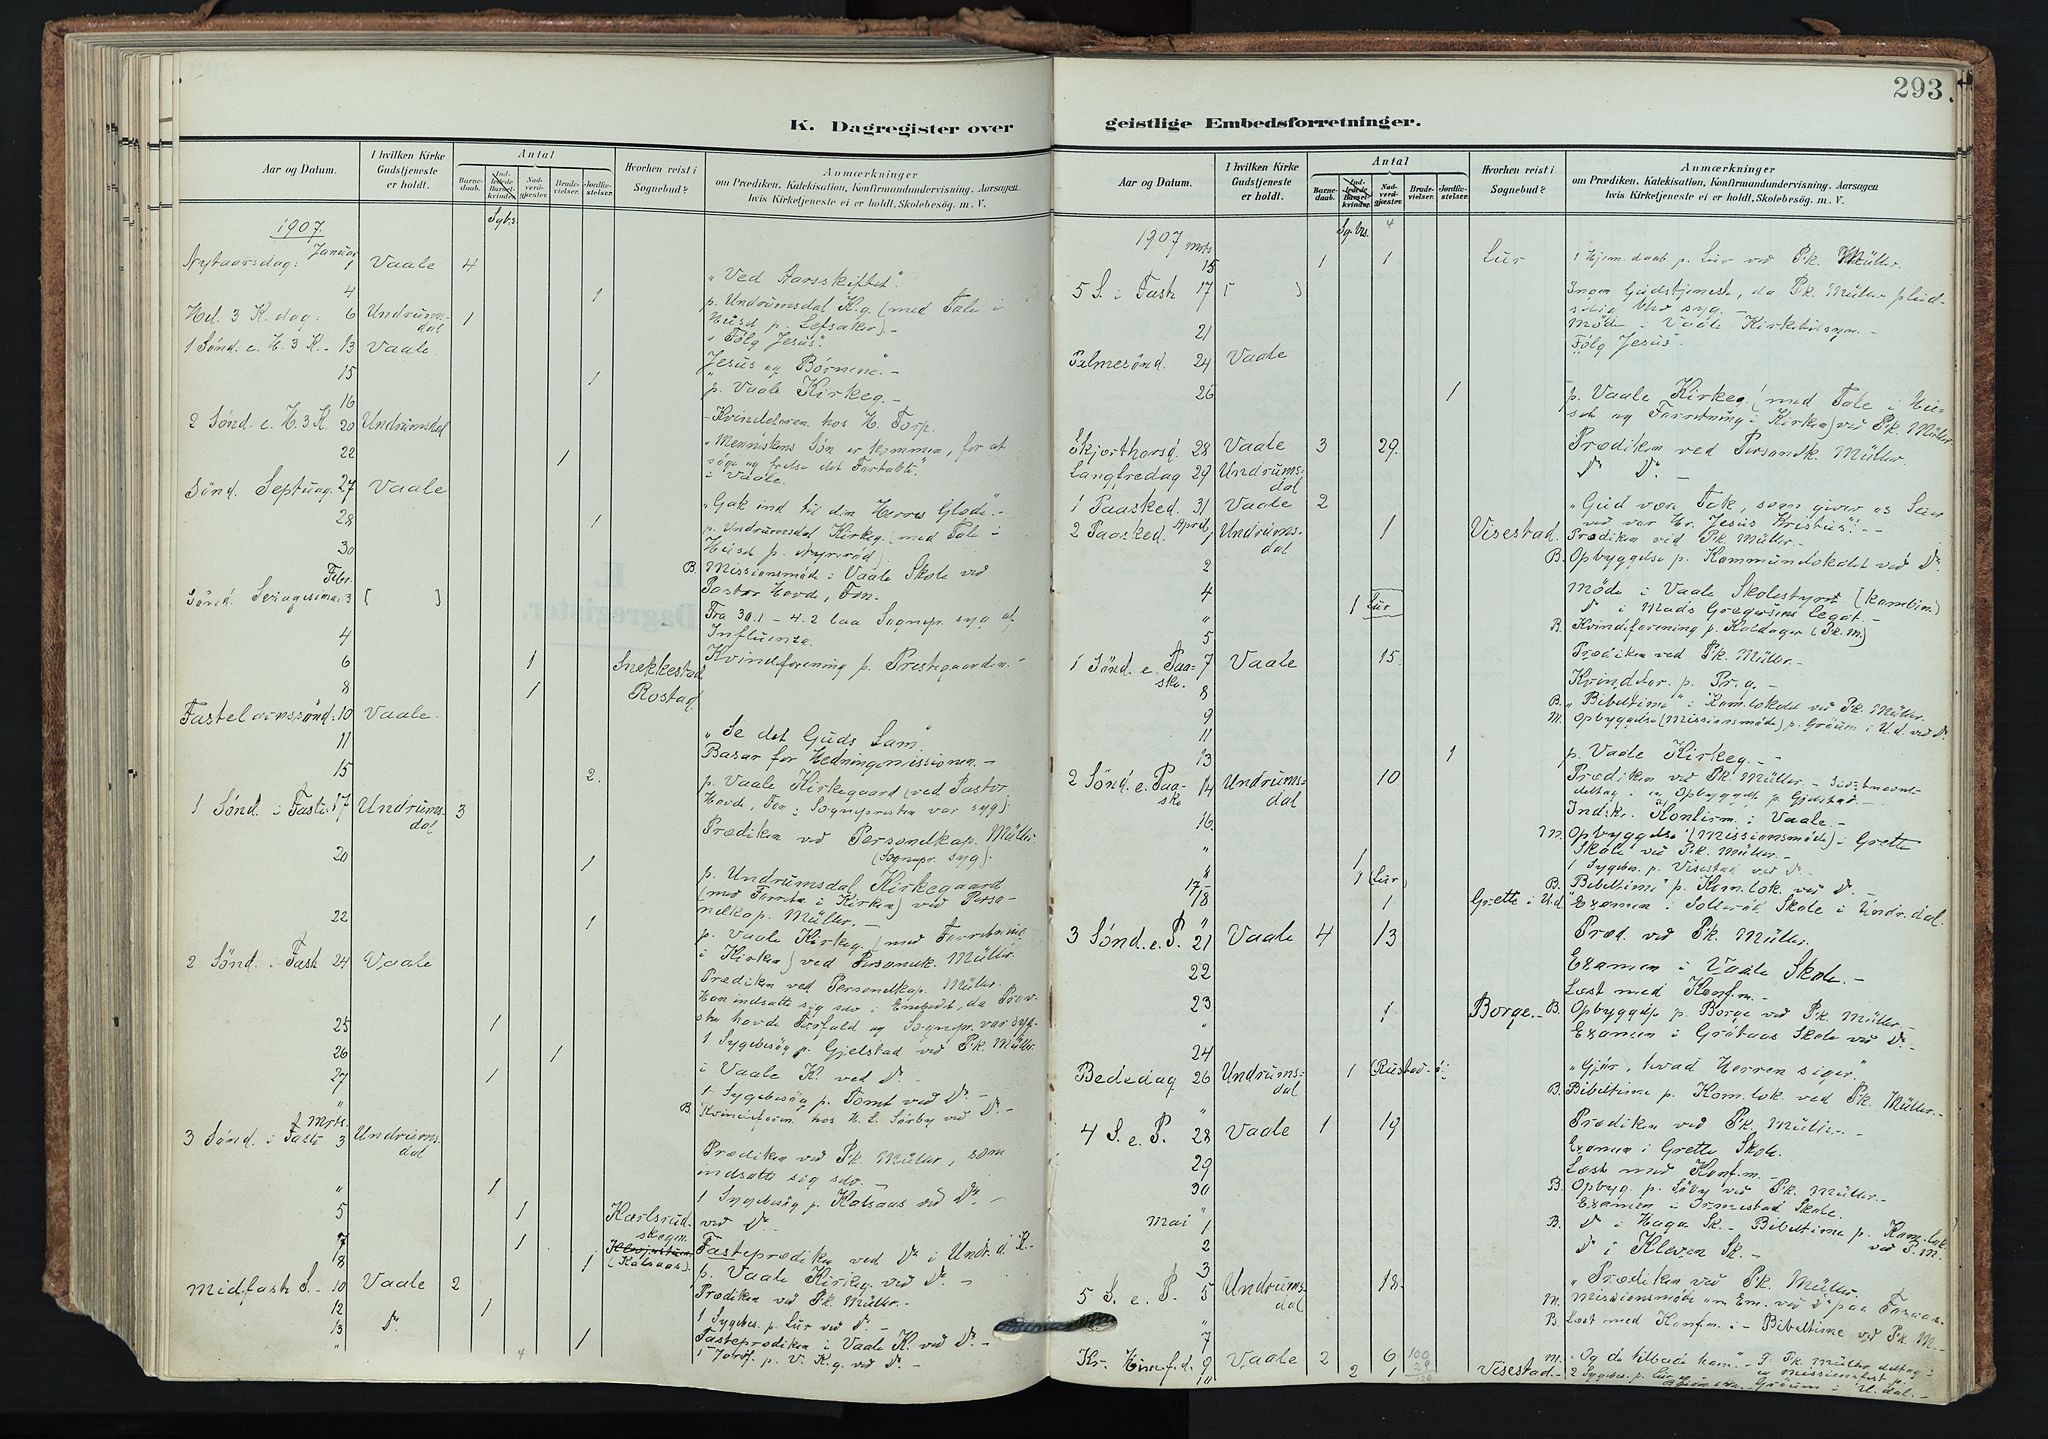 293.
K. Dagregister over
geistlige Embedsforretninger.
Aar og Datum.
I hvilken Kirke Gudstjeneste er holdt.
Antal
Barnedaab.
Indledede Barselkvinder.
Nadverdgjæster.
Brudevielser.
Jordfæstelser.
Hvorhen reist i Sognebud?
Anmærkninger
om Prædiken, Katekisation, Konfirmandundervisning, Aarsagen
hvis Kirketjeneste ei er holdt, Skolebesøg. m. V.
Sgbs.
1907
Januar
Nytaarsdag: 1 Vaale 4
"Ved Aarsskiftet".
4 1 p. Undrumsdal K.g. (med Tale i
Hel. 3 K. dag: 6 Undrumsdal 1
Huset p. Lefsaker) -
"Følg Jesus".
1 Sønd. e. H. 3 K. - 13 Vaale
Jesus og Børnene. -
15 1 p. Vaale Kirkeg. -
16 Kvindeforen. hos H. Torp.
2 Sønd. e. H. 3 K. 20 Undrumsdal
"Menneskens Søn er kommen, for at
søge og frelse det Fortabte"
22 1 i Vaale.
Sønd. Septuag. 27 Vaale
"Gak ind til din Herres Glæde". -
28 1 p. Undrumsdal Kirkeg. med Tale i
30 B. Missionsmøde i Vaale Skole ved
Pastor Hovde, Fon.
Febr.
Sønd. Sexagesima: 3 [ ]
Fra 30.1 - 4.2 laa Sognepr. syg af
Influenza.
4 Kvindforening p. Prestegaarden. -
6 1 Snekkestad
8 1 Rostad.
Fastelavnssønd. 10 Vaale.
"Se det Guds Lam"
11 Basar for Hedningemissionen. -
15 2. p. Vaale Kirkegaard (ved Pastor
Hovde, Fon: Sognepresten var syg).
1 Sønd. i Faste 17 Undrumsdal 3
Prædiken ved Personelkap. Müller.
(Sognepr. syg).
20 1 p. Undrumsdal Kirkegaard
(med Forretn. i Kirken) ved Personelkap. Müller. -
22 1 p. Vaale Kirkeg. (med Forretning
i Kirken) ved Personelk. Müller.
2 Sønd. i Fast 24 Vaale
Prædiken ved Personelkap. Müller.
Han indsatte sig selv i Embedet, da Provsten havde Forfald og Sognepr. var syg. -
25 1 1 Sygebesøg p. Gjelstad ved P.k. Müller.
26 1 i Vaale K. ved Do. -
27 1 1 Sygebesøg p. Tomt ved Do. -
" B. Kvindeforen. hos H. L. Sørby ved Do. -
Mrts.
3 Sønd. i Faste 3 Undrumsdal
Prædiken ved P.k. Müller, som
indsatte sig selv. -
" 1 1 Sygebesøg p. Kalsaas ved Do. -
5 1 Karlsrudskogen. ved Do.
7 1 Fasteprædiken ved Do i Undr.d.K. -
8 1 (Kalsaas). p. Vaale Kirkeg. ved Do. -
Midfaste S. - 10 Vaale 2
Prædiken ved P.k. Müller. -
12 1 1 Sygebes. p. Lur ved Do. -
13 Do. Fasteprædiken i Vaale K. ved Do. -
" 1 1 Jordf. p. V. K.g. ved Do. -
Aar og Datum.
I hvilken Kirke Gudstjeneste er holdt.
Antal
Barnedaab.
Indledede Barselkvinder.
Nadverdgjæster.
Brudevielser.
Jordfæstelser.
Hvorhen reist i Sognebud?
Anmærkninger
om Prædiken, Katekisation, Konfirmandundervisning, Aarsagen
hvis Kirketjeneste ei er holdt, Skolebesøg. m. V.
Sg.bs. 4
1907 Mrts
15 1 1 Lur 1 hjem.daab p. Lur ved P.k. Müller.
5 S. i Fast 17 [ ] Ingen Gudstjeneste, da P.k. Müller pludselig blev syg. -
21 Møde i Vaale Kirketilsyn. -
Palmesønd. 24 Vaale "Følg Jesus".
26 1 p. Vaale Kirkeg. (med Tale i Huset og Forretning i Kirken) ved P.k. Müller
Skjærthorsd. 28 Vaale 3 29. Prædiken ved Personelk. Müller.
Langfredag 29 Undrumsdal Do Do. -
1 Paasked. 31 Vaale 2 "Gud være Tak, som giver os Seier
ved vor Hr. Jesus Kristus"! -
April
2 Paasked. 1 Undrumsdal 1 Visestad. Prædiken ved P.k. Müller. -
2 B. Opbyggelse p. Kommunelokalet ved Do.
4 1 Lur Møde i Vaale Skolestyre (kombin.)
" Do i Mads Gregersens legat. -
5 B. Kvindeforening p. Kaldager (P.k. M.)
1 Sønd. e. Paaske. 7 Vaale 15 Prædiken ved P.k. Müller. -
8 Kvindefor. p. Pr.g. -
9 B. "Bibeltime" i Kom.lokalet ved P.k. Müller.
11 M. Opbyggelse (Missionsmøde) p. Gráum i U.d. ved Do.
13 1 p. Vaale Kirkeg. -
2 Sønd. e. Paaske 14 Undrumsdal 10 Prædiken ved P.k. Müller. - Sidstnævnte
deltog i en Opbyggelse p. Gjelstad. -
16. Indskr. Konfirm. i Vaale. -
" 1 M. Opbyggelse (Missionsmøde) i Grette
Skole ved P.k. Müller. -
1 Sygebes. p. Visestad ved Do. -
17 - 1 (Lur) B. "Bibeltime" p. Kom.lok. ved Do. -
18 1 Grette i U.d. Examen i Solerød Skole i Undr.dal.
3 Sønd. e. P. 21 Vaale 4 13 Præd. ved P.k. Müller.
22 Examen i Vaale Skole. -
23 Læst med Konf.m. -
" 1 Borge. - B. Opbyggelse p. Borge ved P.k. Müller. -
24 Examen i Gretaas Skole ved Do. -
Bededag 26 Undrumsdal 1 (Rustad "Gjør, hvad Herren siger"
" B. Bibeltime p. Kom.lok. ved P.k. Müller. -
4 S. e. P. 28 Vaale 1 19 Prædiken ved P.k. Müller. -
29 Examen i Grette Skole.
30 Læst med Konf.m. -
" B. Opbyg. p. Søby ved P.k. Müller. -
Mai 1 Examen i Ormestad Skole.
B. Do i Haga Sk. - Bibeltime p. Kom.lok.
ved P. M.
2 Do i Kleven Sk. -
3
5 S. e. P. 5 Undrumsdal 18. Prædiken ved P.k. Müller.
" M. Missionsmøde om Em. ved Do paa
7 B. Læst med Konf.m. - Bibeltime ved P.k. M. -
Kr. Himf.d. 9 Vaale 2 6 100 M. "Og de tilbade ham". - P.k. Müller deltog i
29
129
10 2 1 Visestad. - 2 Sygebes. p. Lur
en Missionsfest p.
Gráum i U.dal. -